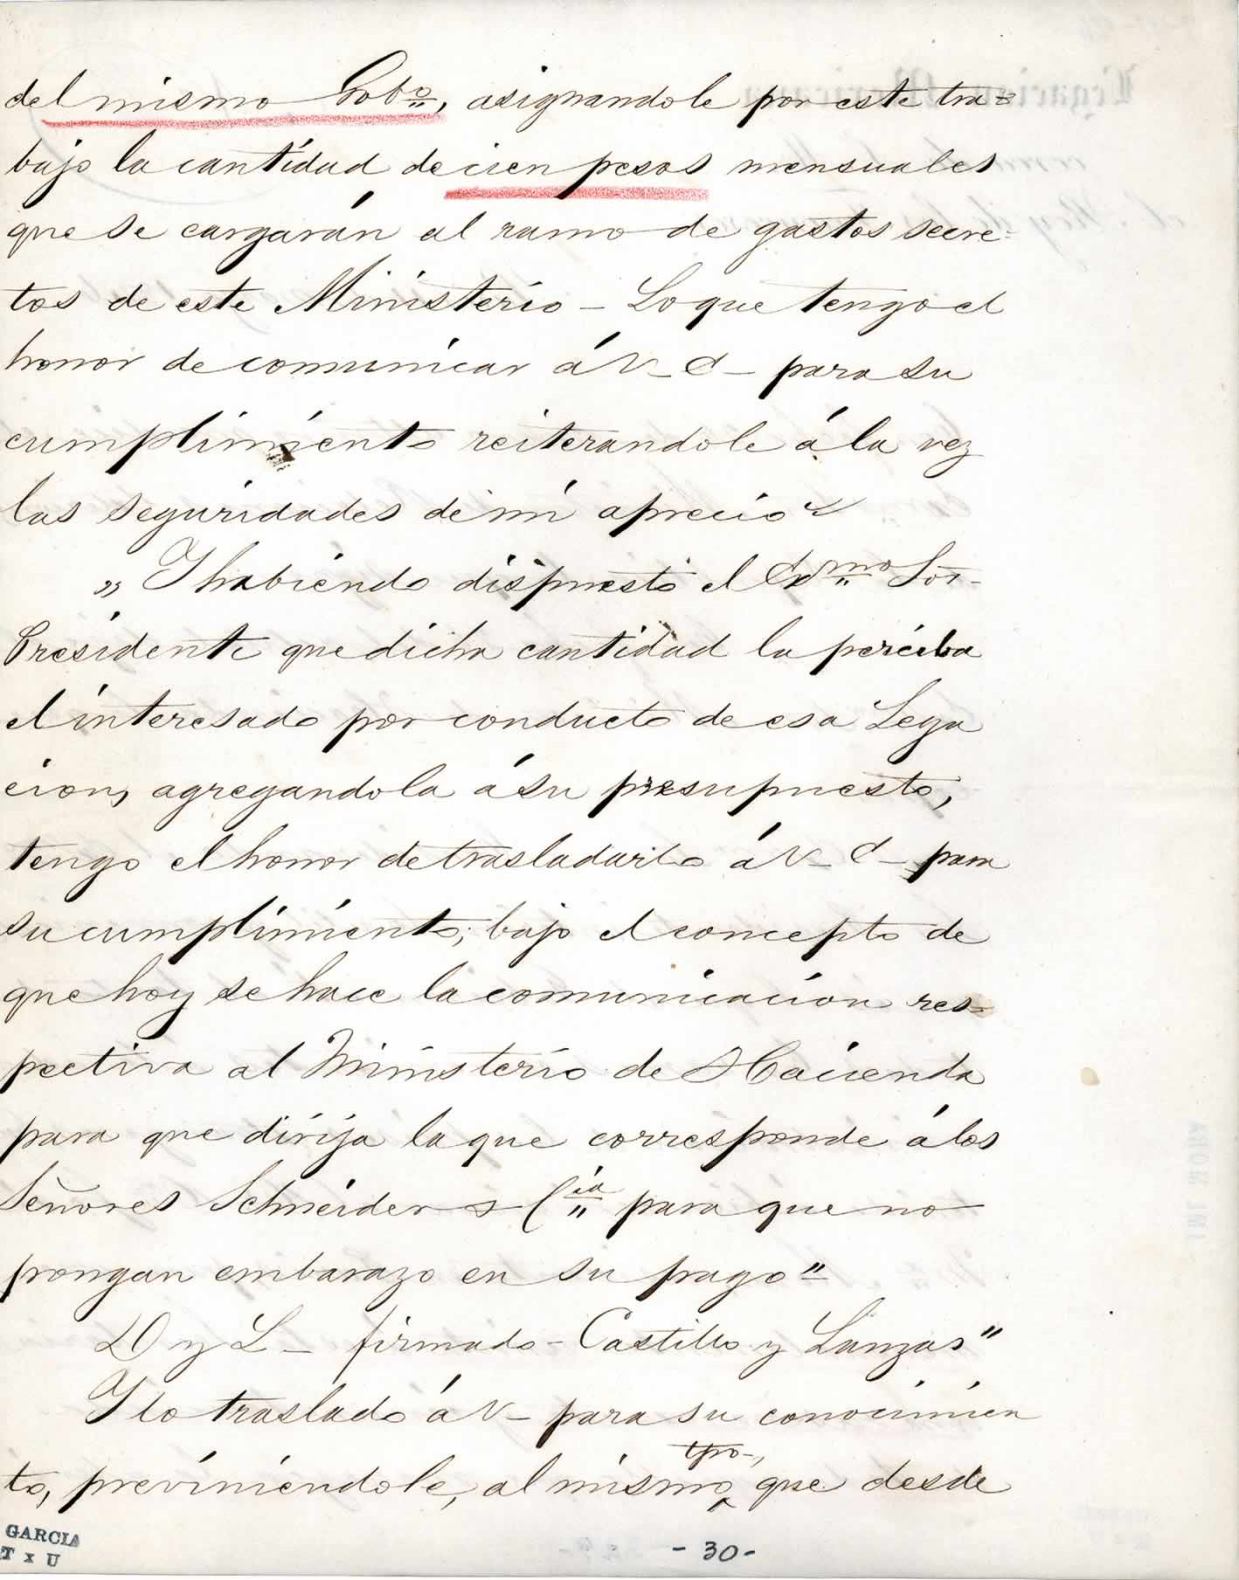 del mismo Gobo., asignandole por este tra=
bajo la cantidad de cien pesos mensuales
que se cargarán al ramo de gastos secre=
tos de este Ministerio - Lo que tengo el
honor de comunicar á V_ E_ para su
cumplimiento reiterandole á la vez
las seguridades de mi aprecio
" Y habiendo dispuesto el Exmo Sor.
Presidente que dicha cantidad la perciba
el interesado por conducto de esa Lega
cion, agregandola á su presupuesto,
tengo el honor de trasladarlo á V_ E_ para
su cumplimiento; bajo el concepto de
que hoy se hace la comunicacion res-
pectiva al Ministerio de Hacienda
para que dirija la que corresponde á los
Señores Schneider y Cia para que no
pongan embarazo en su pago"
D y L_ firmado - Castillo y Lanzas"
Y lo traslado á V_ para su conocimien
to, previniéndole, al mismo tpo., que desde
GARCIA
T x U
- 30 -